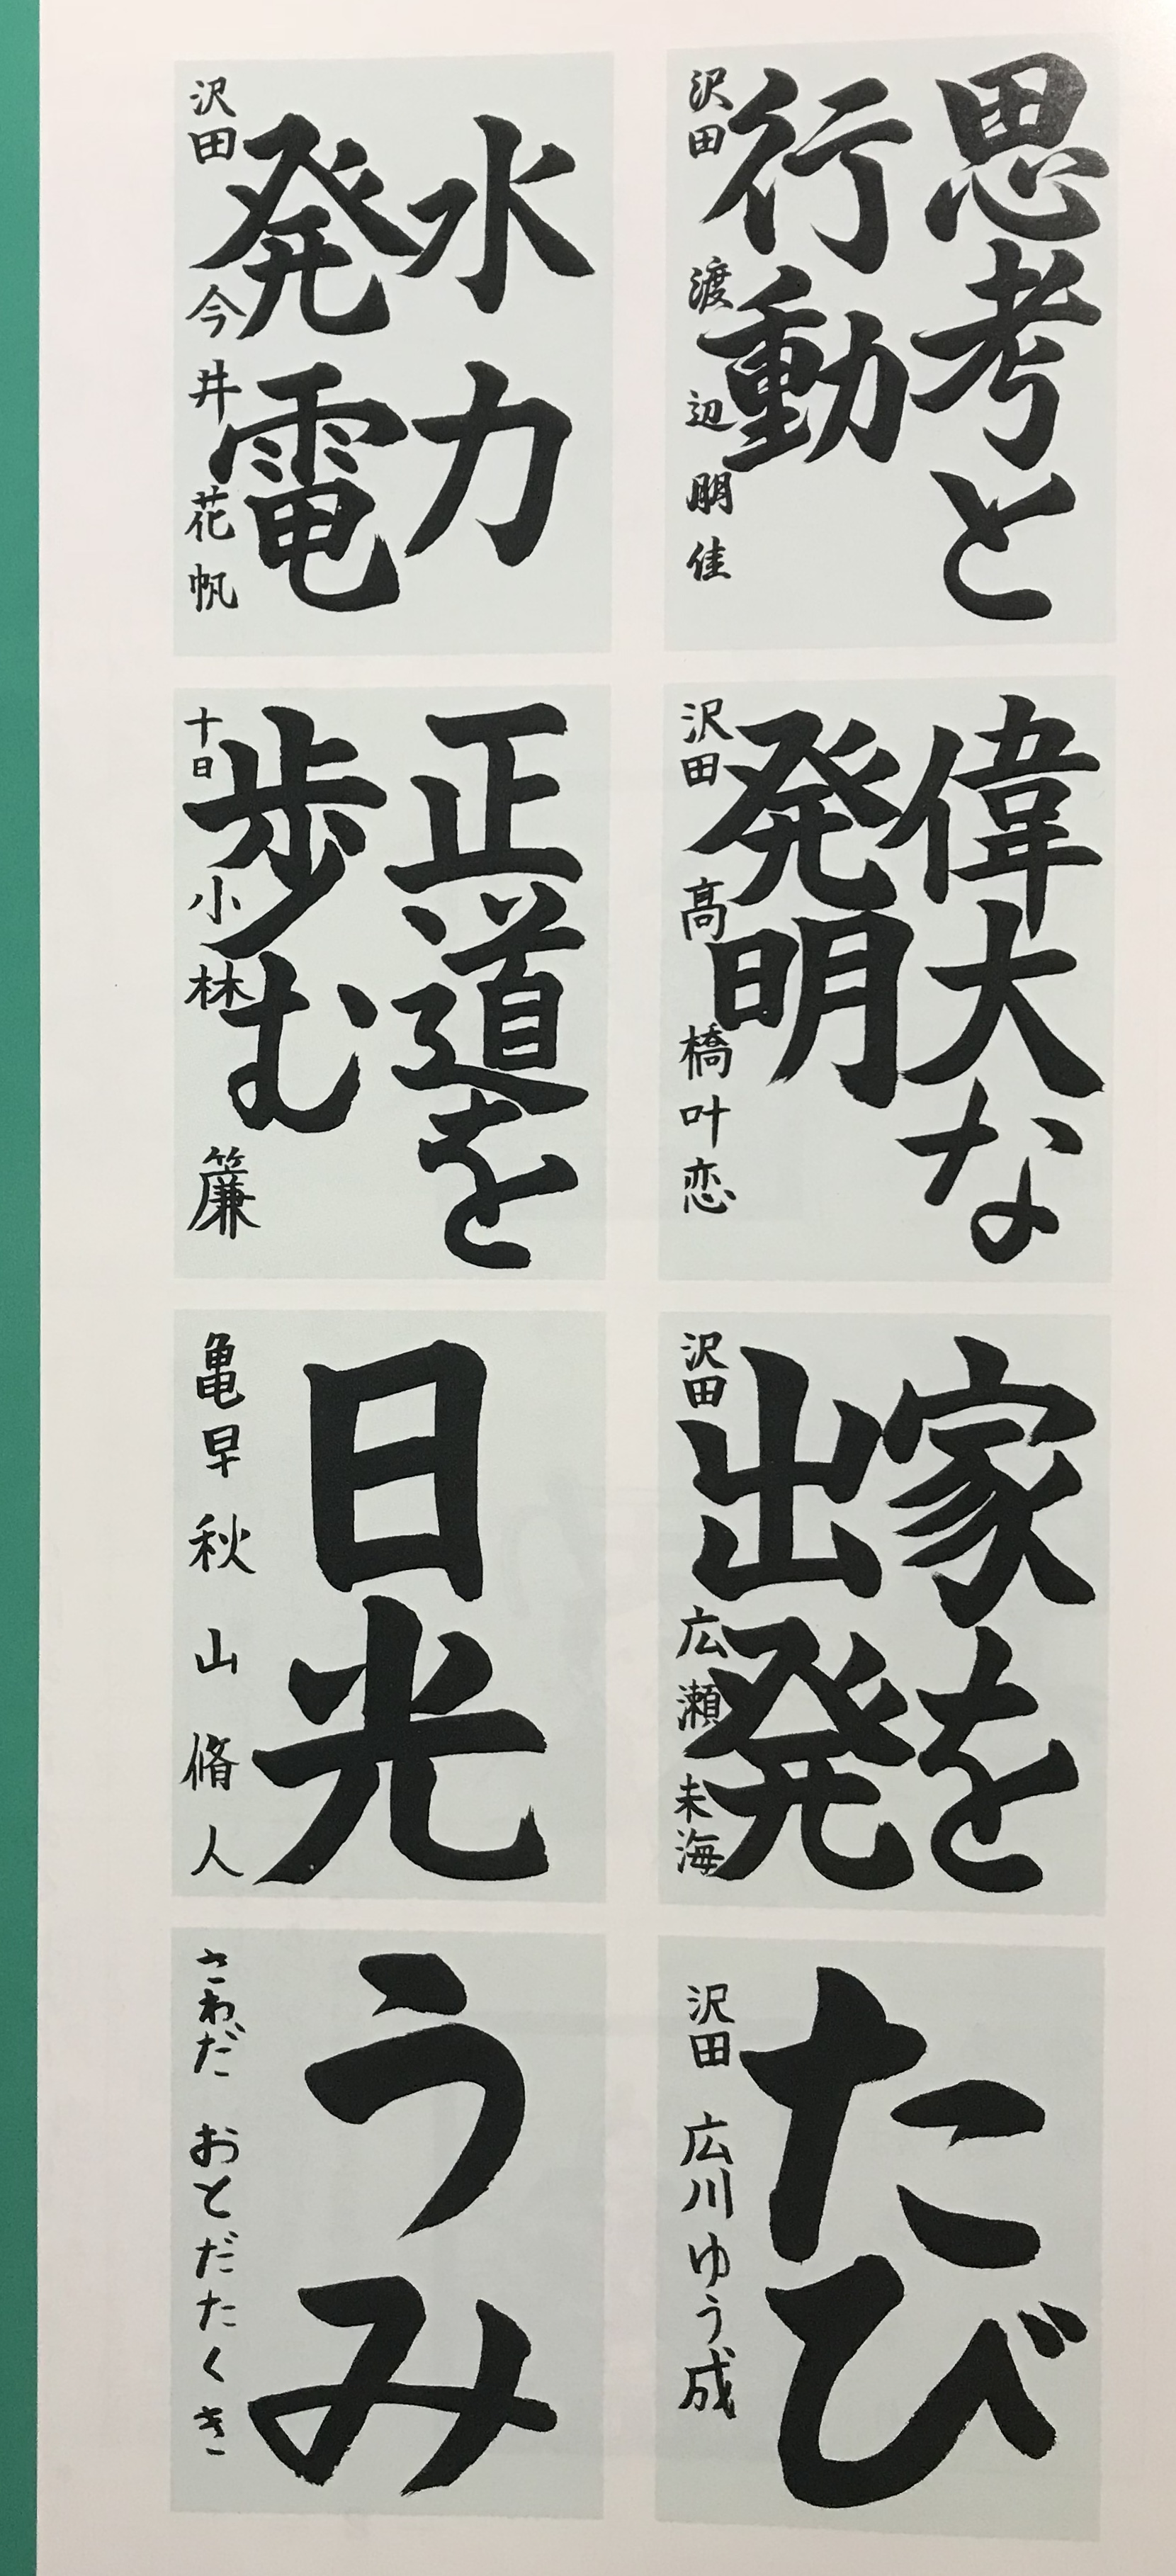 思考と
行動
沢田 渡辺朋佳
水力
発電
沢田 今井花帆
偉大な
発明
沢田 高橋叶恋
正道を
歩む
十日 小林簾
家を
出発
沢田 広瀬未海
日光
亀早 秋山脩人
たび
沢田 広川ゆう成
うみ
さわだ おとだたくき